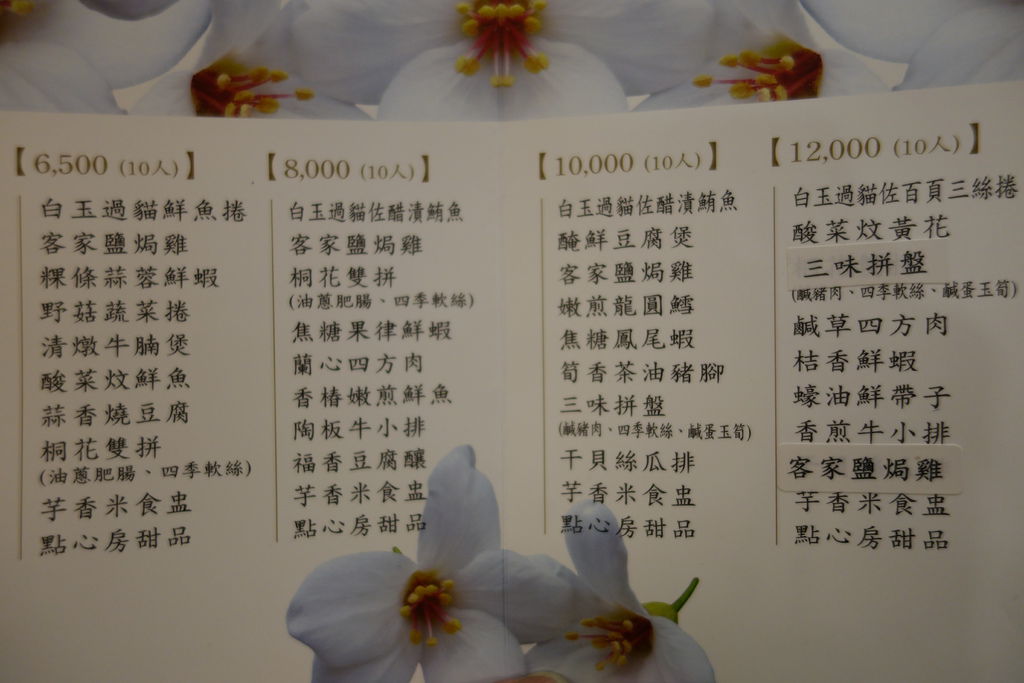 【6,500 (10人)】
白玉過貓鮮魚捲
客家鹽焗雞
粿條蒜蓉鮮蝦
野菇蔬菜捲
清燉牛腩煲
酸菜炆鮮魚
蒜香燒豆腐
桐花雙拼
(油蔥肥腸、四季軟絲)
芋香米食盅
點心房甜品
【8,000 (10人)】
白玉過貓佐醋漬鮪魚
客家鹽焗雞
桐花雙拼
(油蔥肥腸、四季軟絲)
焦糖果律鮮蝦
蘭心四方肉
香椿嫩煎鮮魚
陶板牛小排
福香豆腐釀
芋香米食盅
點心房甜品
【10,000 (10人)】
白玉過貓佐醋漬鮪魚
醃鮮豆腐煲
客家鹽焗雞
嫩煎龍圓鱈
焦糖鳳尾蝦
筍香茶油豬腳
三味拼盤
(鹹豬肉、四季軟絲、鹹蛋玉筍)
干貝絲瓜排
芋香米食盅
點心房甜品
【12,000 (10人)】
白玉過貓佐百頁三絲捲
酸菜炆黃花
三味拼盤
(鹹豬肉、四季軟絲、鹹蛋玉筍)
鹹草四方肉
桔香鮮蝦
蠔油鮮帶子
香煎牛小排
客家鹽焗雞
芋香米食盅
點心房甜品